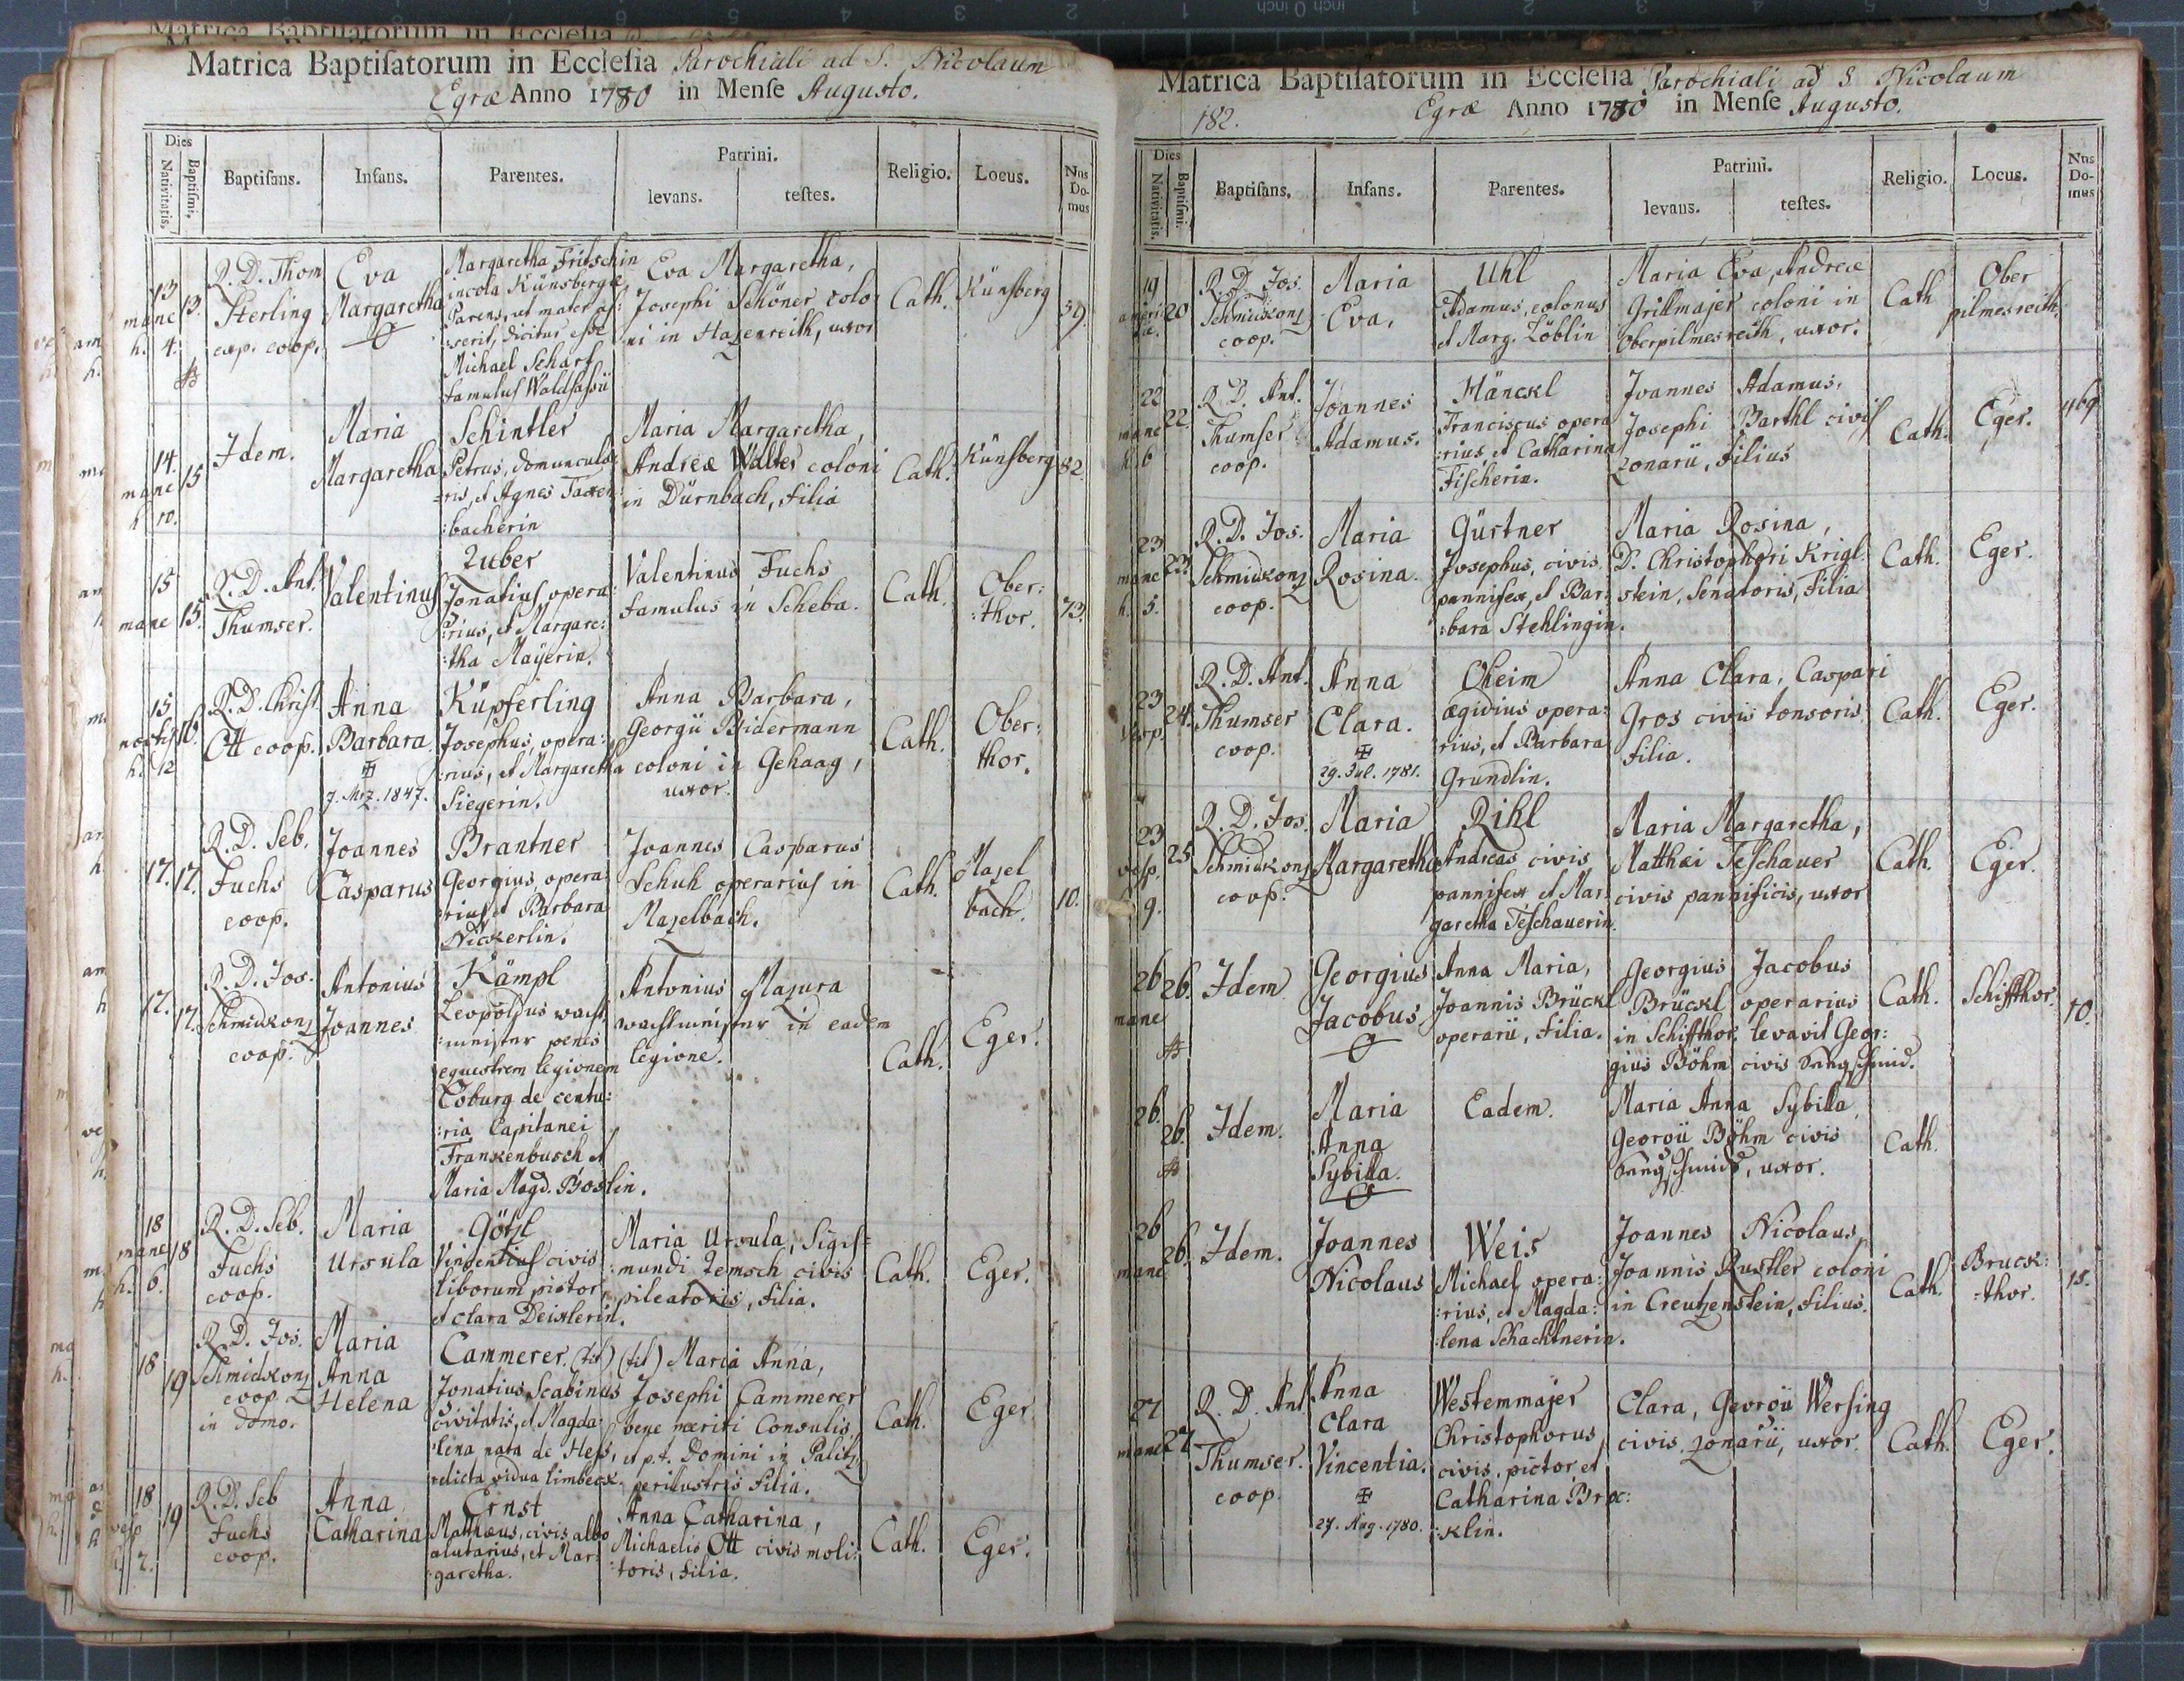 Matrica Baptiſatorum in Eccleſia Parochiali ad S. Nicolaum
Egræ Anno 1780 in Menſe Augusto.
Dies
Nativitatis.
Baptiſmi.
Baptiſans.
Infans.
Parentes.
Patrini.
levans.
teſtes.
Religio.
Locus.
Nus
Do-
mus
13
mane
h. 4.
13.
R. D. Thom
Sterling
exp. coop.
Eva
Margaretha
Margaretha Fritschin
incola Künsbergæ
Parens, ut mater as:
:serit, dicitur esse
Michael Scharf
famulus Waldsassii
Eva Margaretha,
Josephi Schöner colo
ni in Hazenreith, uxor
Cath.
Künsberg
59.
14.
mane
h 10.
15
Idem.
Maria
Margaretha
Schintler
Petrus, domuncula:
:ris, et Agnes Taxen:
:bacherin
Maria Margaretha,
Andreæ Walter coloni
in Dürnbach, filia
Cath.
Künsberg
82.
15
mane
15.
R. D. Ant.
Thumser.
Valentinus
Zuber
Ignatius opera:
:rius, et Margare:
:tha Mayerin.
Valentinus Fuchs
famulus in Scheba.
Cath.
Ober:
:thor.
73.
15
noctis
h. 12
16.
R. D. Christ.
Ott coop.
Anna
Barbara.
7. Mrz. 1847.
Küpferling
Josephus, opera:
:rius, et Margaretha
Siegerin.
Anna Barbara,
Georgii Bidermann
coloni in Gehaag,
uxor.
Cath.
Ober:
thor.
17.
17.
R. D. Seb.
Fuchs
coop.
Joannes
Casparus
Brantner
Georgius, opera:
rius et Barbara
Nickerlin.
Joannes Casparus
Schuh operarius in
Mazelbach.
Cath.
Mazel
bach.
10.
17.
17.
R. D. Jos.
Schmidkonz
coop.
Antonius
Joannes
Kämpl
Leopoldus wacht
:meister penes
equestrem legionem
Coburg de centu:
:ria Capitanei
Frankenbusch et
Maria Magd. Böslin.
Antonius Mazura
wachtmeister in eadem
legione.
Cath.
Eger.
18
mane
h. 6.
18
R. D. Seb.
Fuchs
coop.
Maria
Ursula
Götzl
Vincentius civis
liborum pistor,
et Clara Deistlerin.
Maria Ursula, Sigis:
:mundi Zemsch civis
pileatoris, filia.
Cath.
Eger.
18
19
R. D. Jos.
Schmidkonz
coop.
in domo.
Maria
Anna
Helena
Cammerer. (tit)
Ignatius Scabinus
Civitatis, et Magda:
:lena nata de Hess,
relicta vidua Limbeck.
(tit) Maria Anna,
Josephi Cammerer
bene meriti Consulis,
et p. t. Domini in Palitz,
perillustris filia.
Cath.
Eger
18
vesp
h. 7.
19
R. D. Seb
Fuchs
coop.
Anna
Catharina
Ernst
Matthæus, civis albo
alutarius, et Mar:
:garetha.
Anna Catharina,
Michaelis Ott civis moli:
:toris, filia.
Cath.
Eger.
Matrica Baptiſatorum in Eccleſia Parochiali ad S Nicolaum
182.
Egræ Anno 1780 in Menſe Augusto.
Dies
Nativitatis.
Baptiſmi.
Baptiſans.
Infans.
Parentes.
Patrini.
levans.
teſtes.
Religio.
Locus.
Nus
Do-
mus
19
ameri:
die.
20
R. D. Jos.
Schmidkonz
coop.
Maria
Eva.
Uhl
Adamus, colonus
et Marg. Zöblin
Maria Eva, Andreæ
Grillmajer coloni in
Oberpilmesreith, uxor.
Cath
Ober
pilmesreith.
22
mane
h. 6
22.
R. D. Ant.
Thumser
coop.
Joannes
Adamus.
Hänckl
Franciscus opera
:rius, et Catharina
Fischerin.
Joannes Adamus,
Josephi Barthl civis
zonarii, filius
Cath.
Eger.
469
23
mane
h. 5.
23.
R. D. Jos.
Schmidkonz
coop.
Maria
Rosina.
Gürtner
Josephus, civis
pannifex, et Bar:
:bara Stehlingin.
Maria Rosina,
D. Christophori Krigl:
stein, Senatoris, filia
Cath.
Eger.
23
Vesp.
24.
R. D. Ant.
Thumser
coop.
Anna
Clara.
29. Jul. 1781.
Oheim
Ægidius opera:
:rius, et Barbara
Grundlin.
Anna Clara, Caspari
Gros civis tonsoris
filia.
Cath.
Eger.
23
vesp.
9.
25
R. D. Jos.
Schmidkonz
coop.
Maria
Margaretha
Rihl
Andreas civis
pannifex et Mar:
garetha Teschauerin.
Maria Margaretha,
Matthæi Teschauer
civis pannificis, uxor
Cath.
Eger.
26
mane
26.
Idem
Georgius
Jacobus
Anna Maria,
Joannis Brückl
operarii, filia.
Georgius Jacobus
Brückl operarius
in Schiffthor, levavit Geor:
gius Böhm civis
Cath.
Schiffthor.
10.
26.
26.
Idem.
Maria
Anna
Sybilla.
Eadem.
Maria Anna Sybilla,
Georgii Böhm civis
uxor.
Cath.
26
mane
26.
Idem.
Joannes
Nicolaus
Weis
Michael, opera:
:rius, et Magda:
:lena Schachtnerin.
Joannes Nicolaus,
Joannis Rustler coloni
in Creutzenstein, filius.
Cath.
Bruck:
:thor.
15.
27
mane
27.
R. D. Ant
Thumser.
coop.
Anna
Clara
Vincentia.
27. Aug. 1780.
Westemmajer
Christophorus,
civis, pictor, et
Catharina
:klin.
Clara, Georgii Wersing
civis zonarii, uxor.
Cath.
Eger.